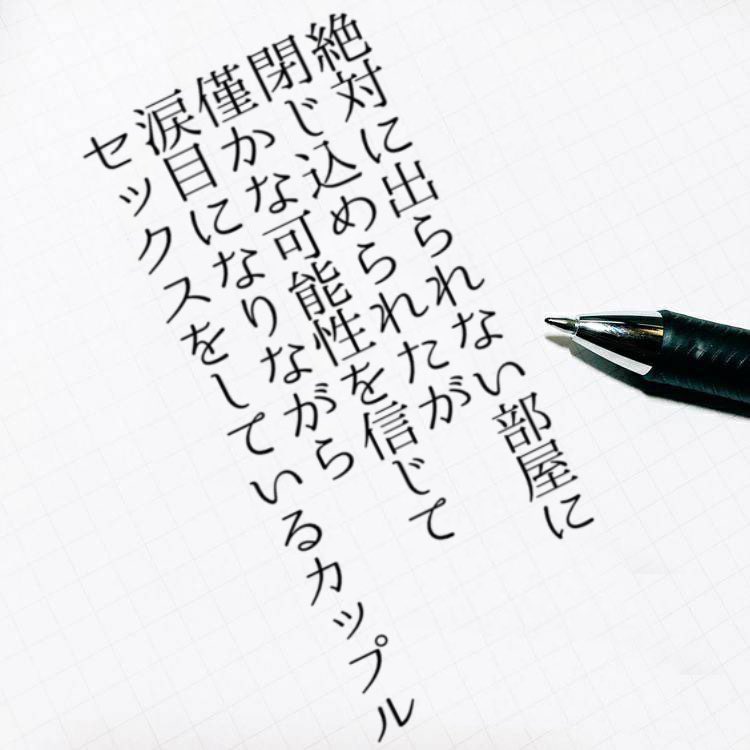 絶対に出られない部屋に
閉じ込められたが
僅かな可能性を信じて
涙目になりながら
セックスをしているカップル